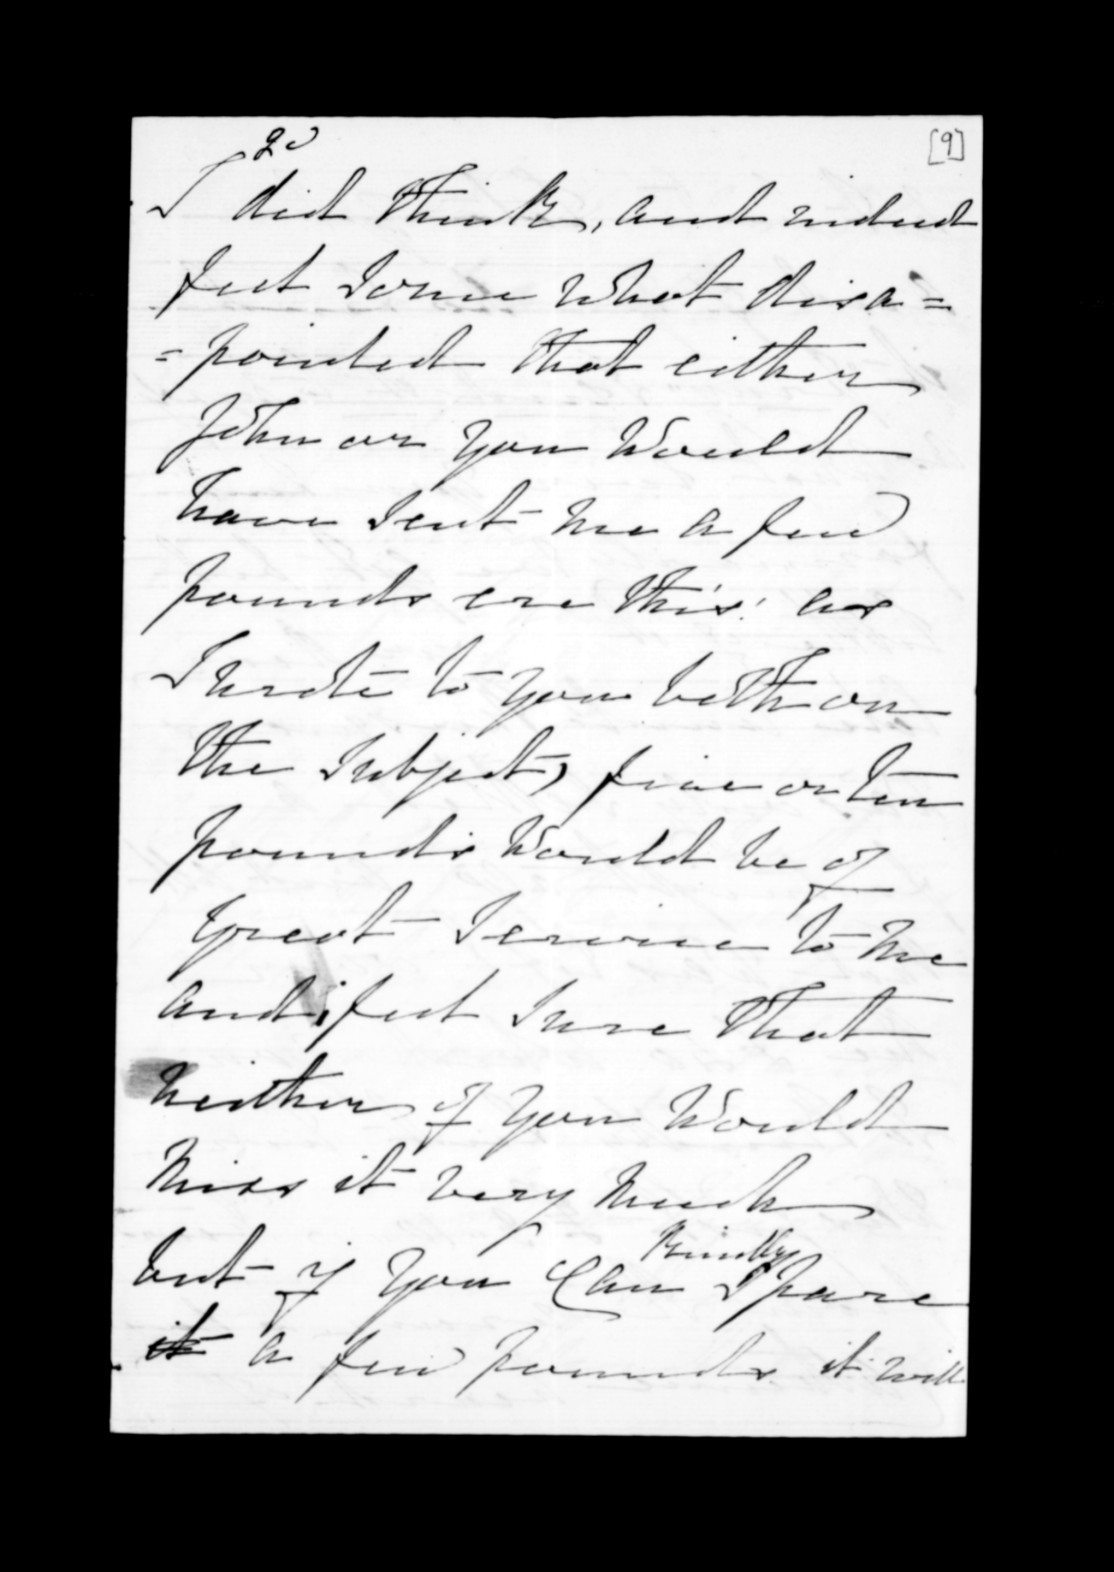 2d
[9]
I did think, and indeed
feel some what disa=
=pointed that either
John or you would
have sent me a few
pounds ere this! as
I wrote to you both on
the subject, five or ten
pounds would be of
great service to me
and i feel sure that
neither of you would
miss it very much
but if you can kindly spare
it a few pounds it will